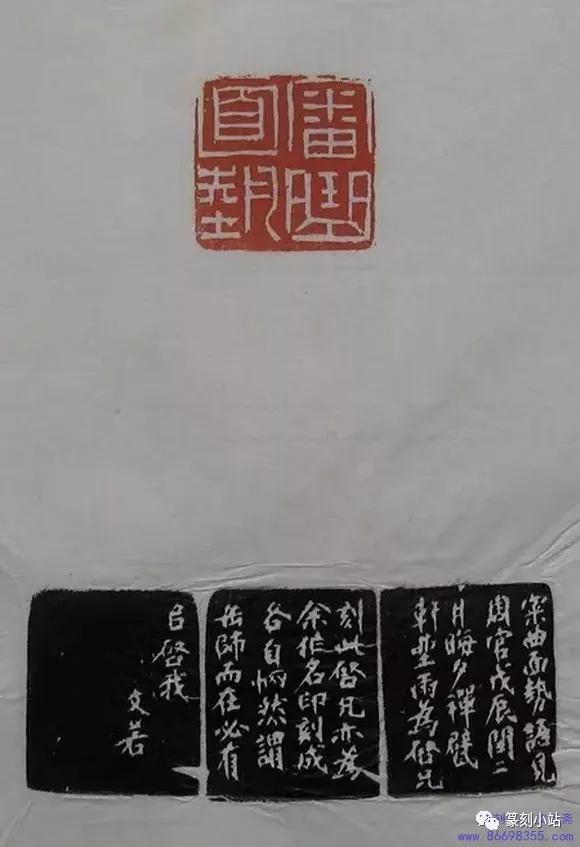 審曲
面埶
審曲面勢語見
周官戊辰閏二
月晦夕禪甓
軒聽雨為啓兄
刻此啓兄亦為
余作名印刻成
各自惘然謂
岳師而在必有
㠯啓我
文若
篆刻小站
斋
www.86698355.com